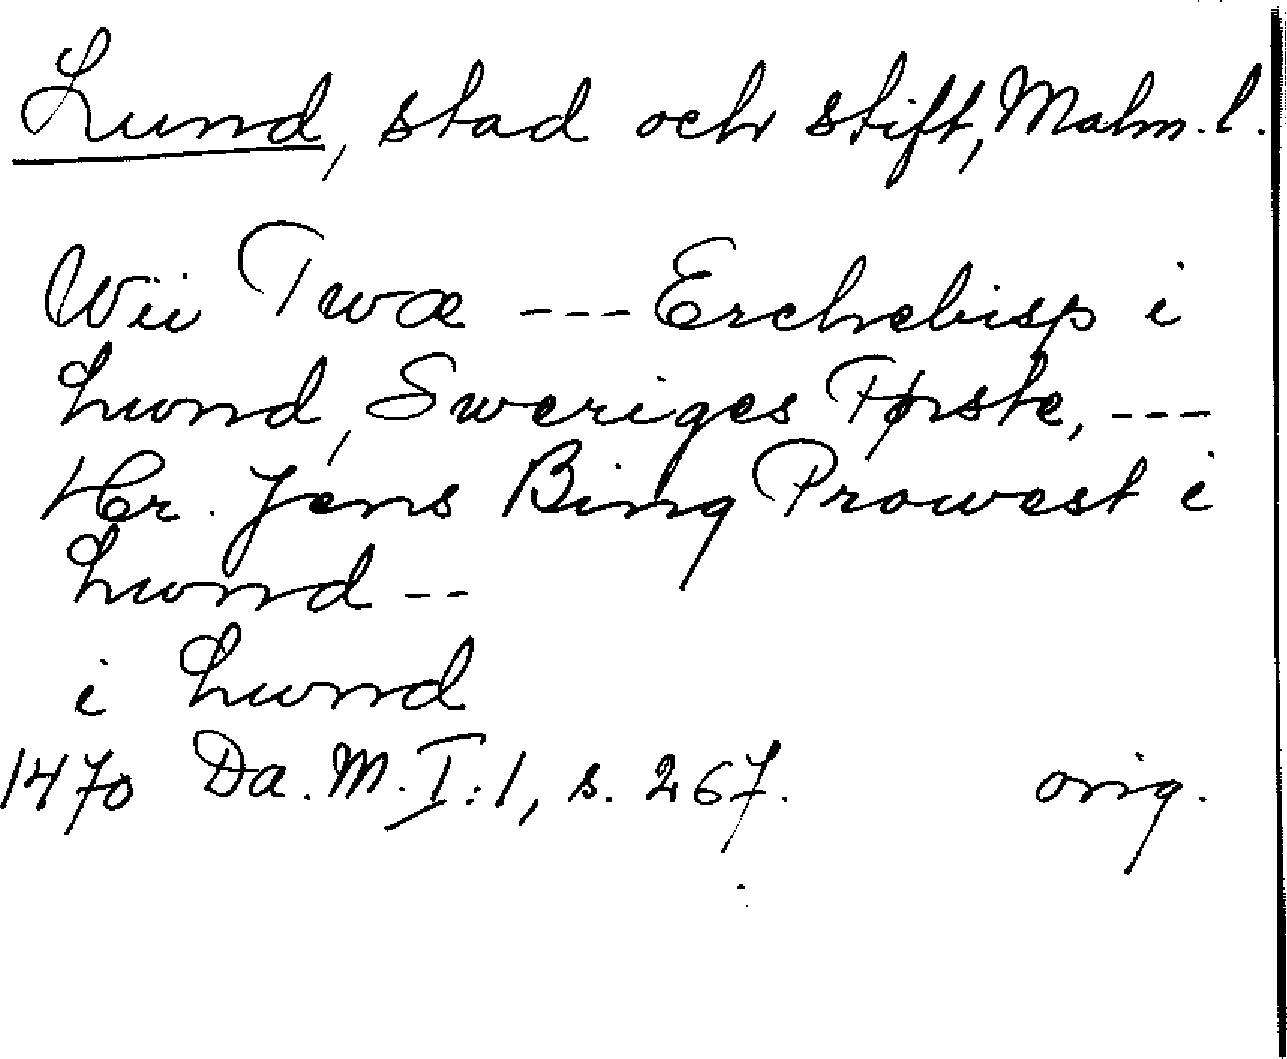 Lund, stad och stift, Malm. l.
Wii Twæ --- Erchebisp i
Lwnd, Sweriges Første, ---
Hr. Jens Bing Prowest i
Lwnd --
i Lwnd
1470 Da. M. I:1, s. 267. orig.